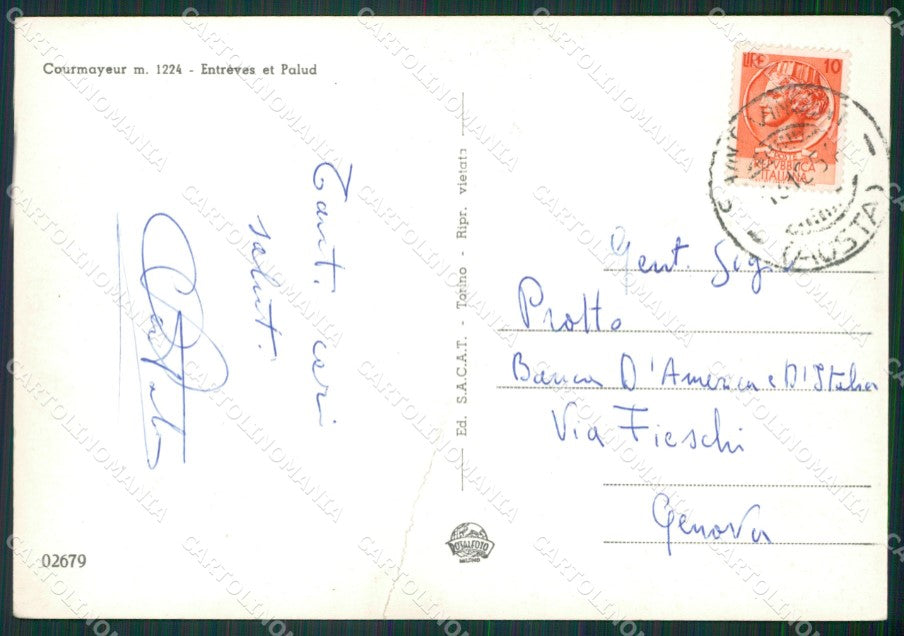 Courmayeur m. 1224 - Entrèves et Palud
Tanti cari
saluti.
Ed. S.A.C.A.T. - Torino - Ripr. vietata
LIRE 10
POSTE
REPVBBLICA
ITALIANA
(AOSTA)
Gent. Sig.
Protto
Banca D'America e D'Italia
Via Fieschi
Genova
02679
CARTOLINOMANIA